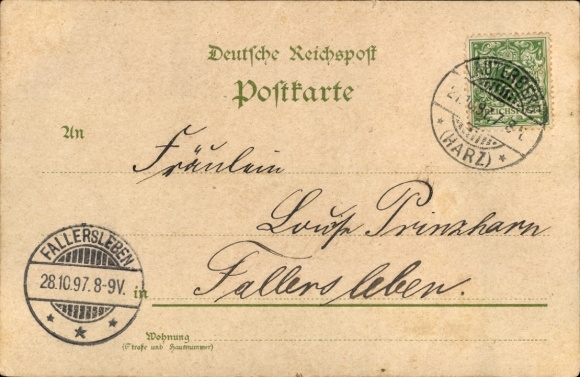 Deutsche Reichspost
Postkarte
LAUTERBERG
(HARZ)
REICHSPOST
An
Fräulein
Louise Prinzhorn
FALLERSLEBEN
28.10.97. 8-9V.
in Fallersleben.
Wohnung
(Straße und Hausnummer)